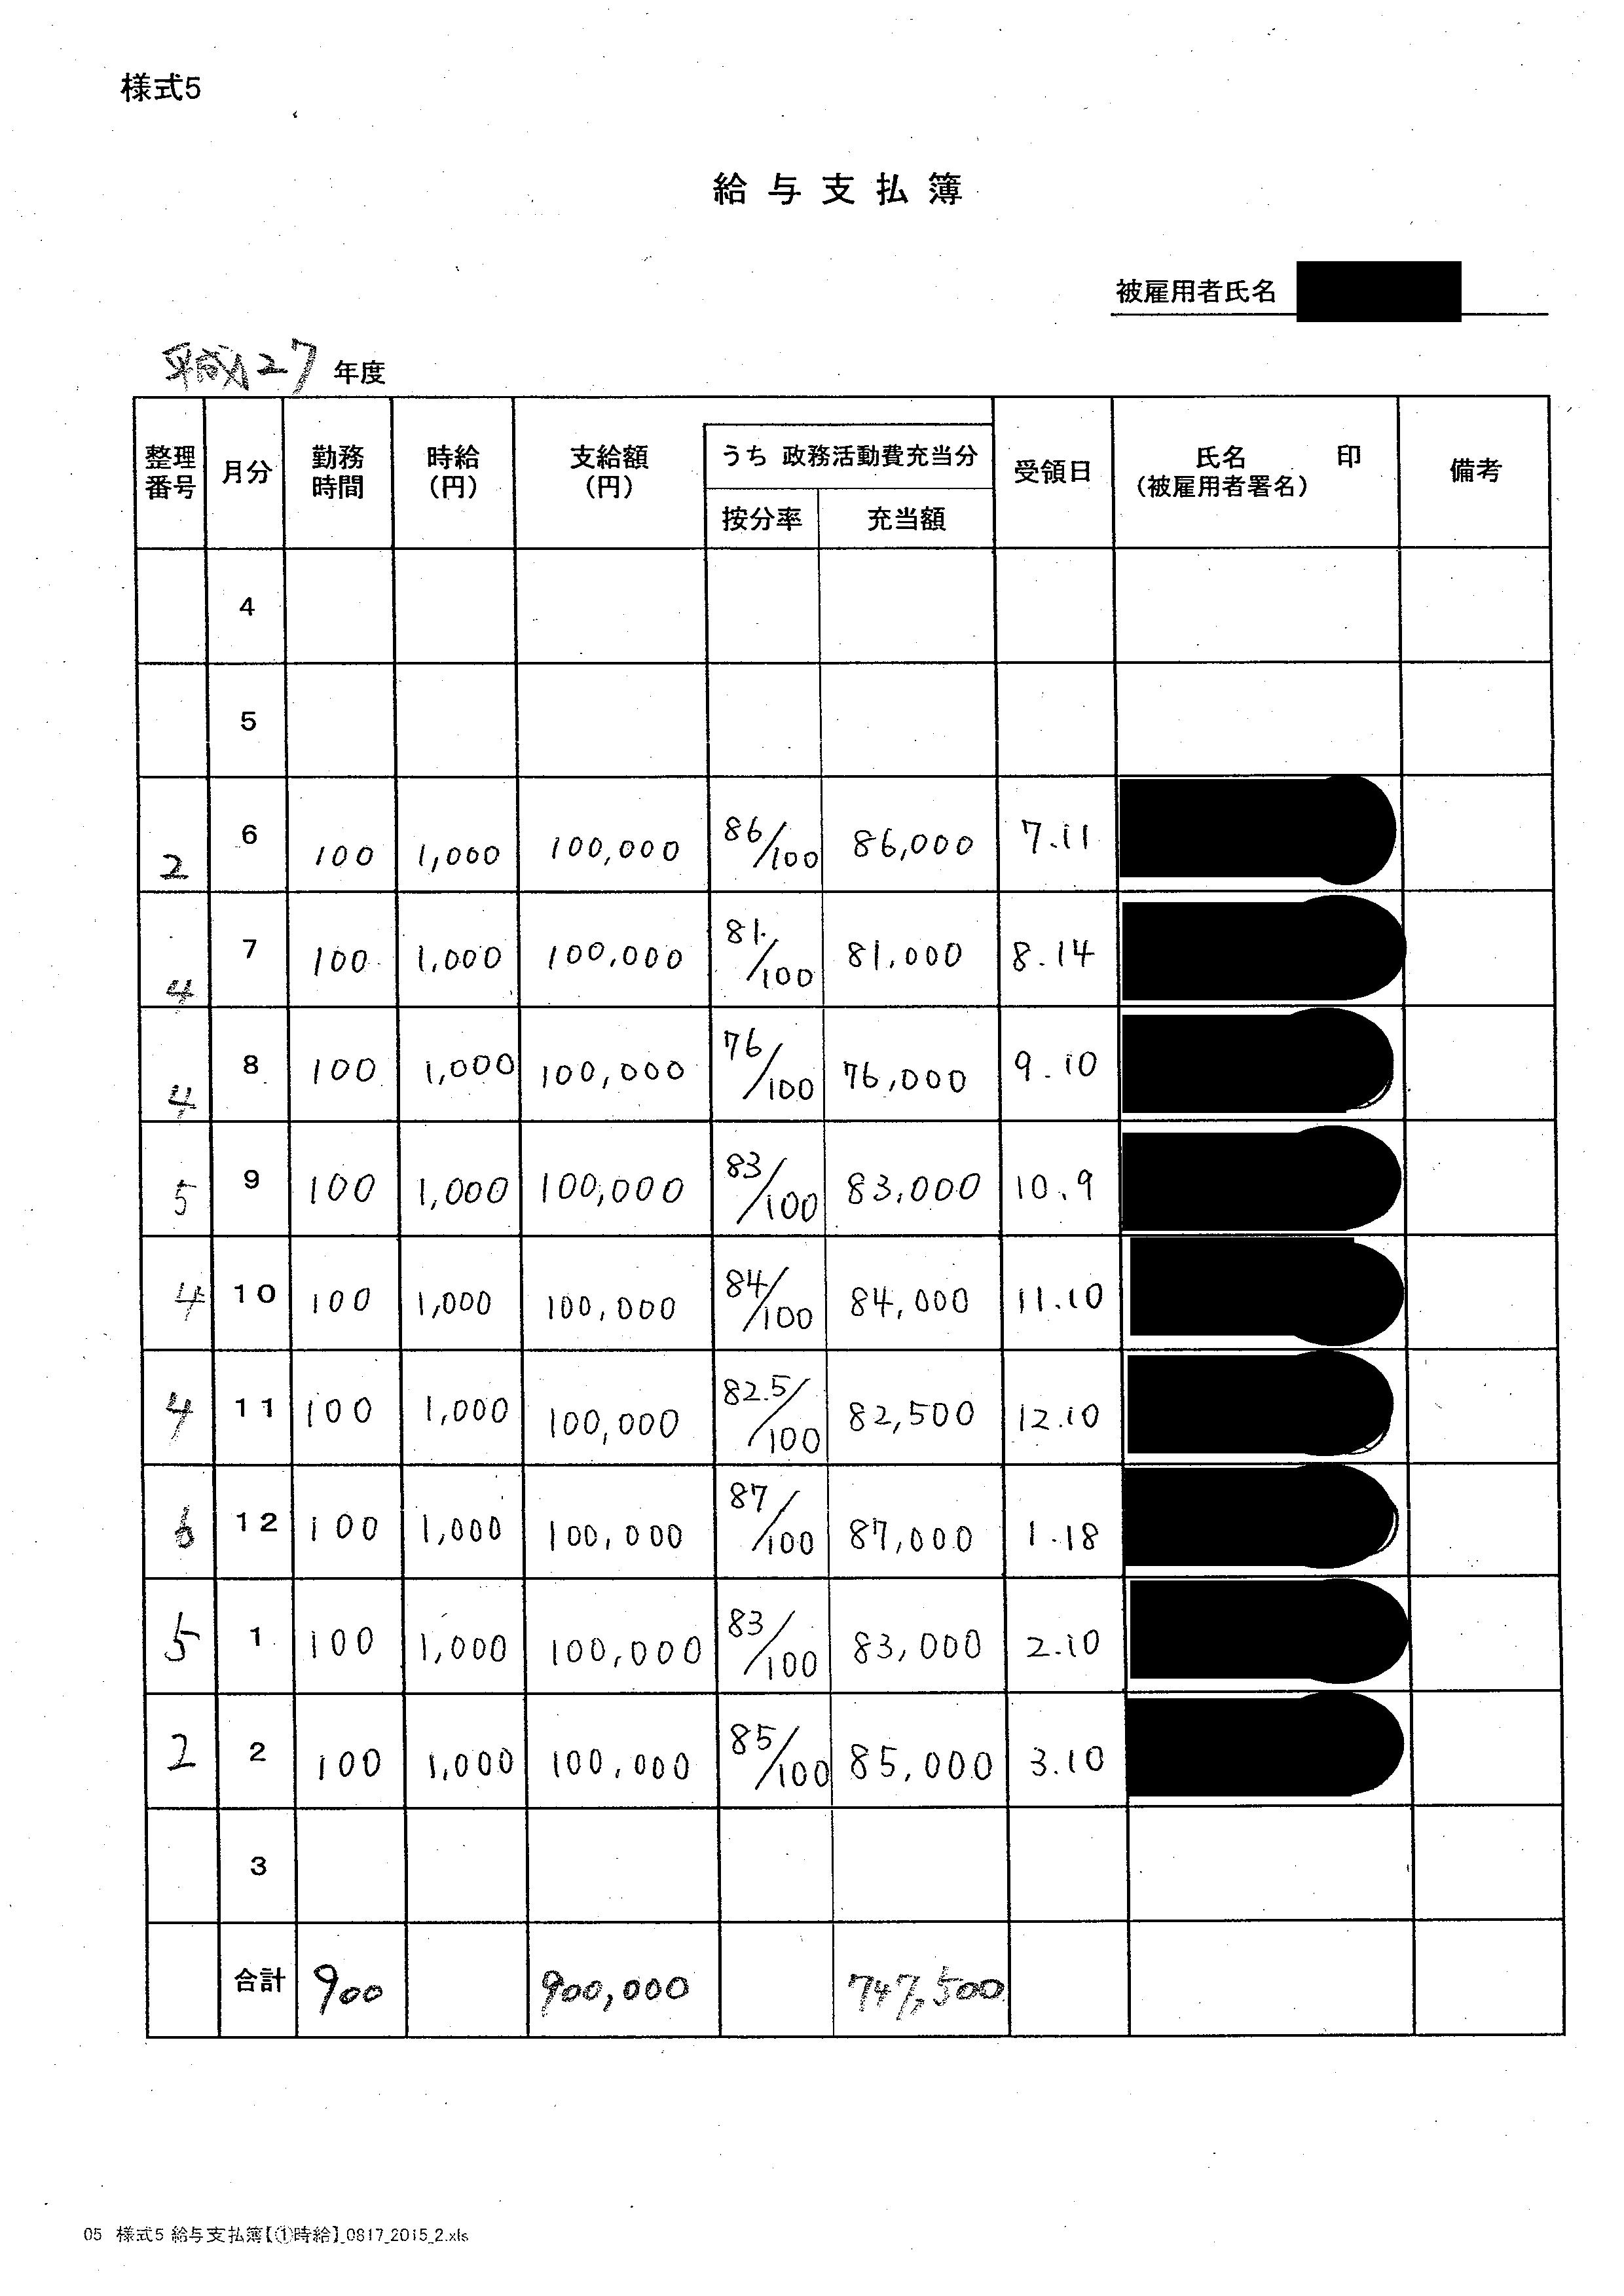 様式5
給与支払簿
被雇用者氏名
平成27年度
整理番号 月分 勤務時間 時給(円) 支給額(円) うち 政務活動費充当分 受領日 氏名(被雇用者署名) 印 備考
按分率 充当額
4
5
2 6 100 1,000 100,000 86/100 86,000 7.11
4 7 100 1,000 100,000 81/100 81,000 8.14
4 8 100 1,000 100,000 76/100 76,000 9.10
5 9 100 1,000 100,000 83/100 83,000 10.9
4 10 100 1,000 100,000 84/100 84,000 11.10
4 11 100 1,000 100,000 82.5/100 82,500 12.10
6 12 100 1,000 100,000 87/100 87,000 1.18
5 1 100 1,000 100,000 83/100 83,000 2.10
2 2 100 1,000 100,000 85/100 85,000 3.10
3
合計 900 900,000 747,500
05 様式5 給与支払簿【①時給】_0817_2015_2.xls